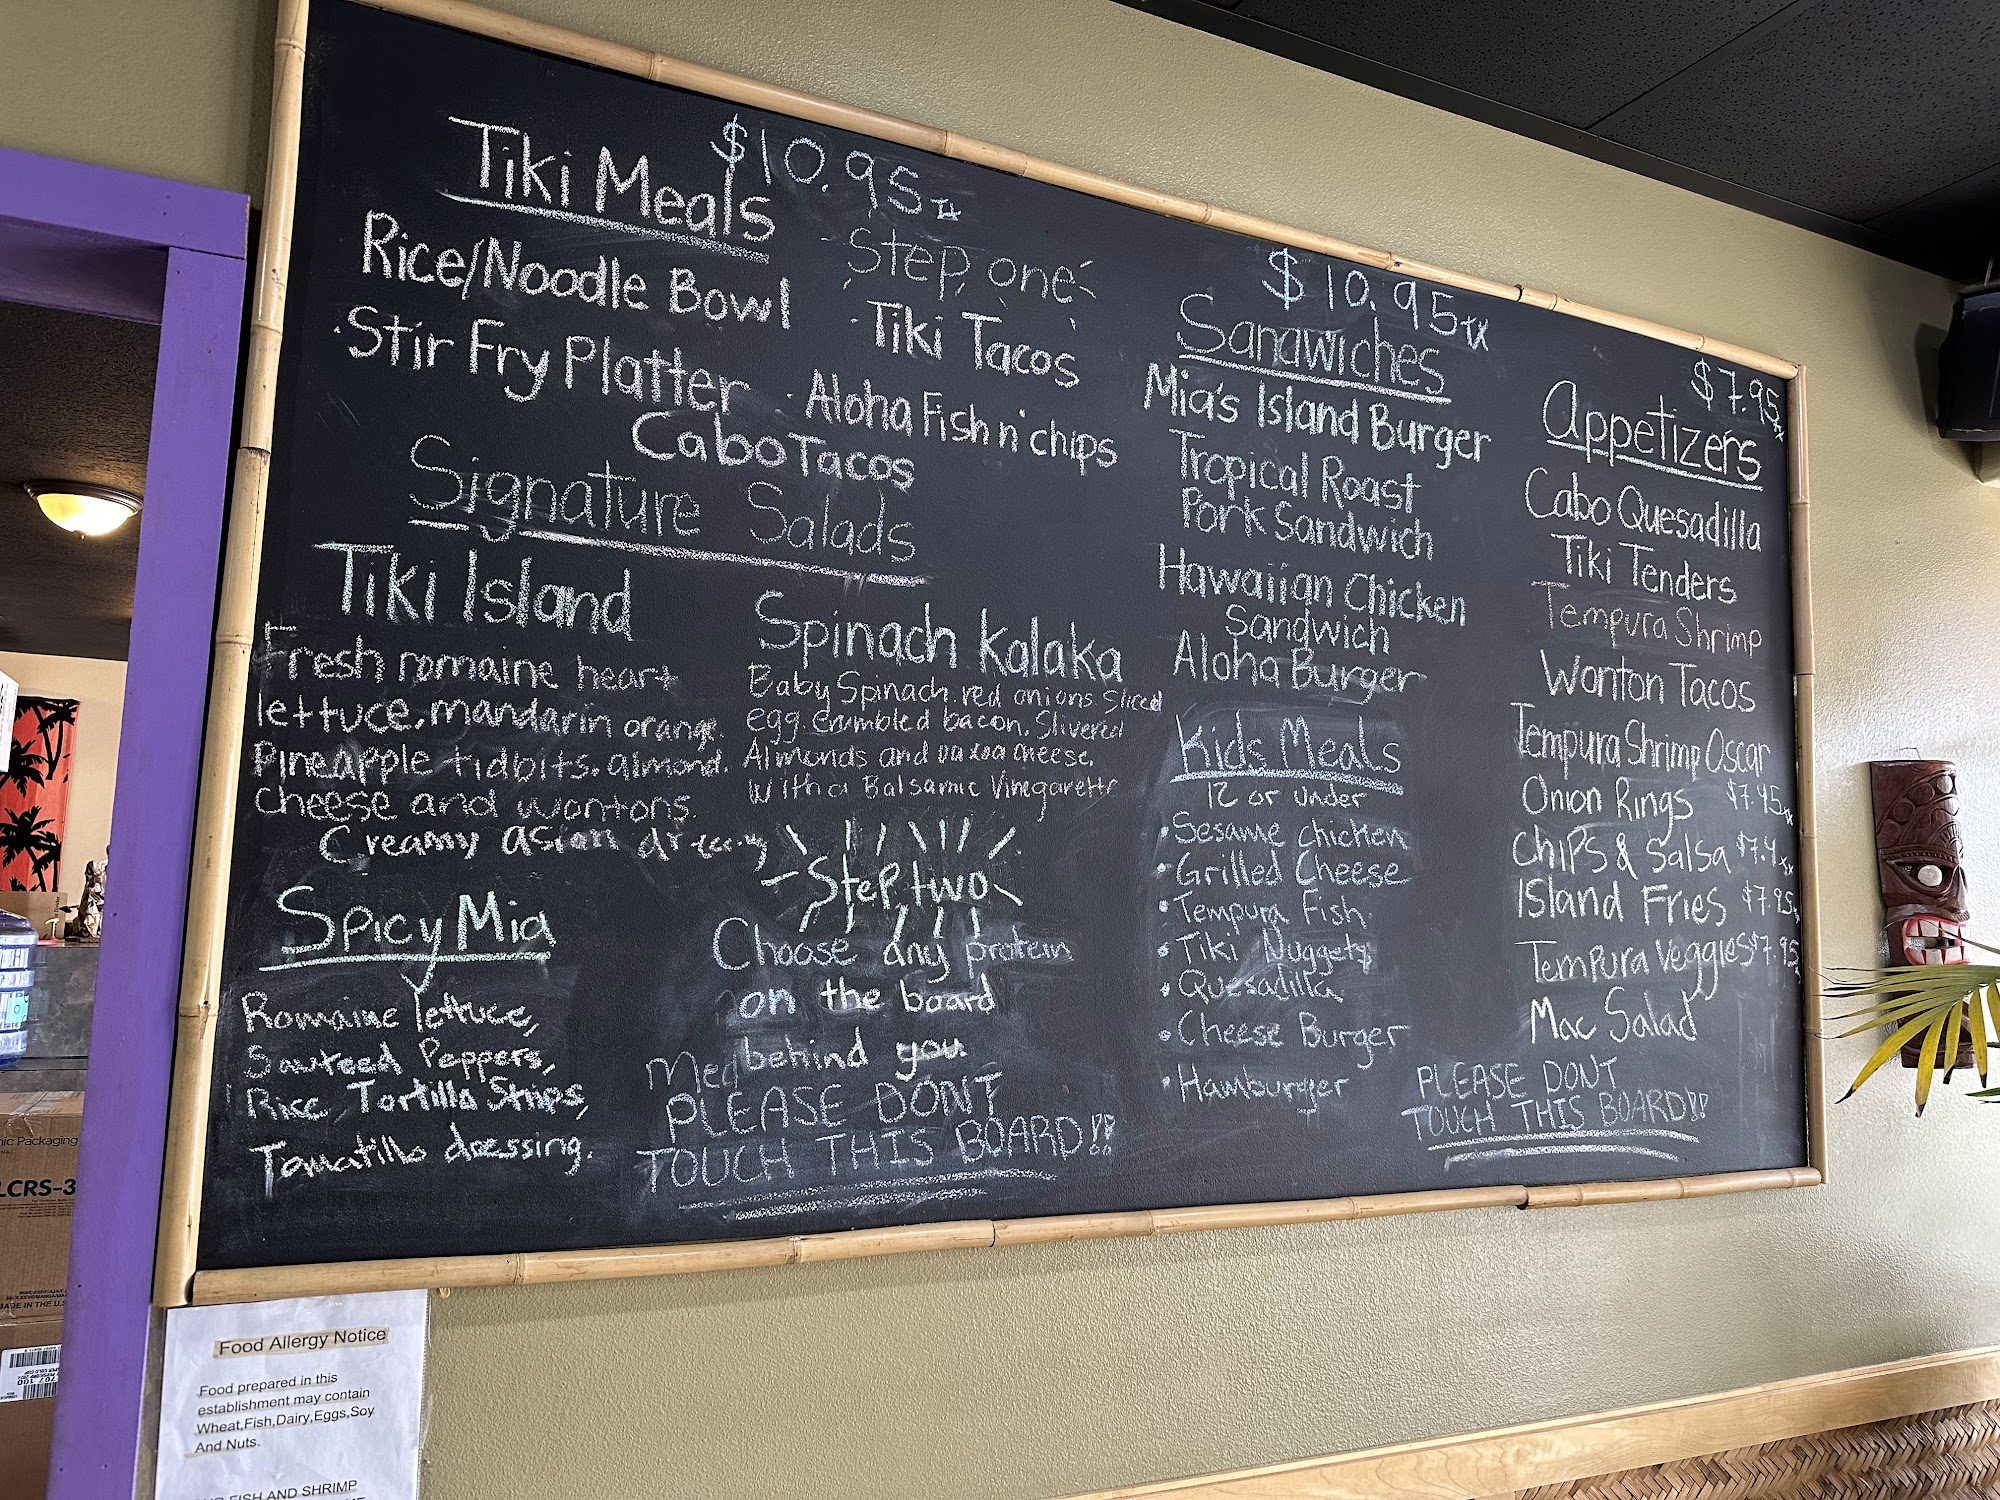 Tiki Meals $10.95
Rice/Noodle Bowl
Step one
·Stir Fry Platter
·Tiki Tacos
·Aloha Fish n' chips
Cabo Tacos
Signature Salads
Tiki Island
Fresh romaine heart
lettuce, mandarin orange.
Pineapple tidbits, almond.
cheese and wontons.
Creamy asian
Spinach Kalaka
Baby Spinach, red onions Sliced
egg, crumbled bacon, Slivered
Almonds and cheese.
With a Balsamic Vinegarette
Spicy Mia
Romaine lettuce,
Sauteed Peppers,
Rice Tortilla Strips,
Tomatillo dressing.
Step two
Choose any protein
on the board
behind you
PLEASE DONT
TOUCH THIS BOARD!!
$10.95
Sandwiches
Mia's Island Burger
Tropical Roast
Pork Sandwich
Hawaiian Chicken
Sandwich
Aloha Burger
Kids Meals
12 or under
·Sesame chicken
·Grilled Cheese
·Tempura Fish
·Tiki Nuggets
·Quesadilla
·Cheese Burger
·Hamburger
$7.95
Appetizers
Cabo Quesadilla
Tiki Tenders
Tempura Shrimp
Wonton Tacos
Tempura Shrimp Oscar
Onion Rings $7.95
Chips & Salsa
Island Fries $7.95
Tempura Veggies $7.95
Mac Salad
PLEASE DONT
TOUCH THIS BOARD!!
Packaging
LCRS-3
MADE IN THE U.S
Food Allergy Notice
Food prepared in this
establishment may contain
Wheat,Fish,Dairy,Eggs,Soy
And Nuts.
FISH AND SHRIMP